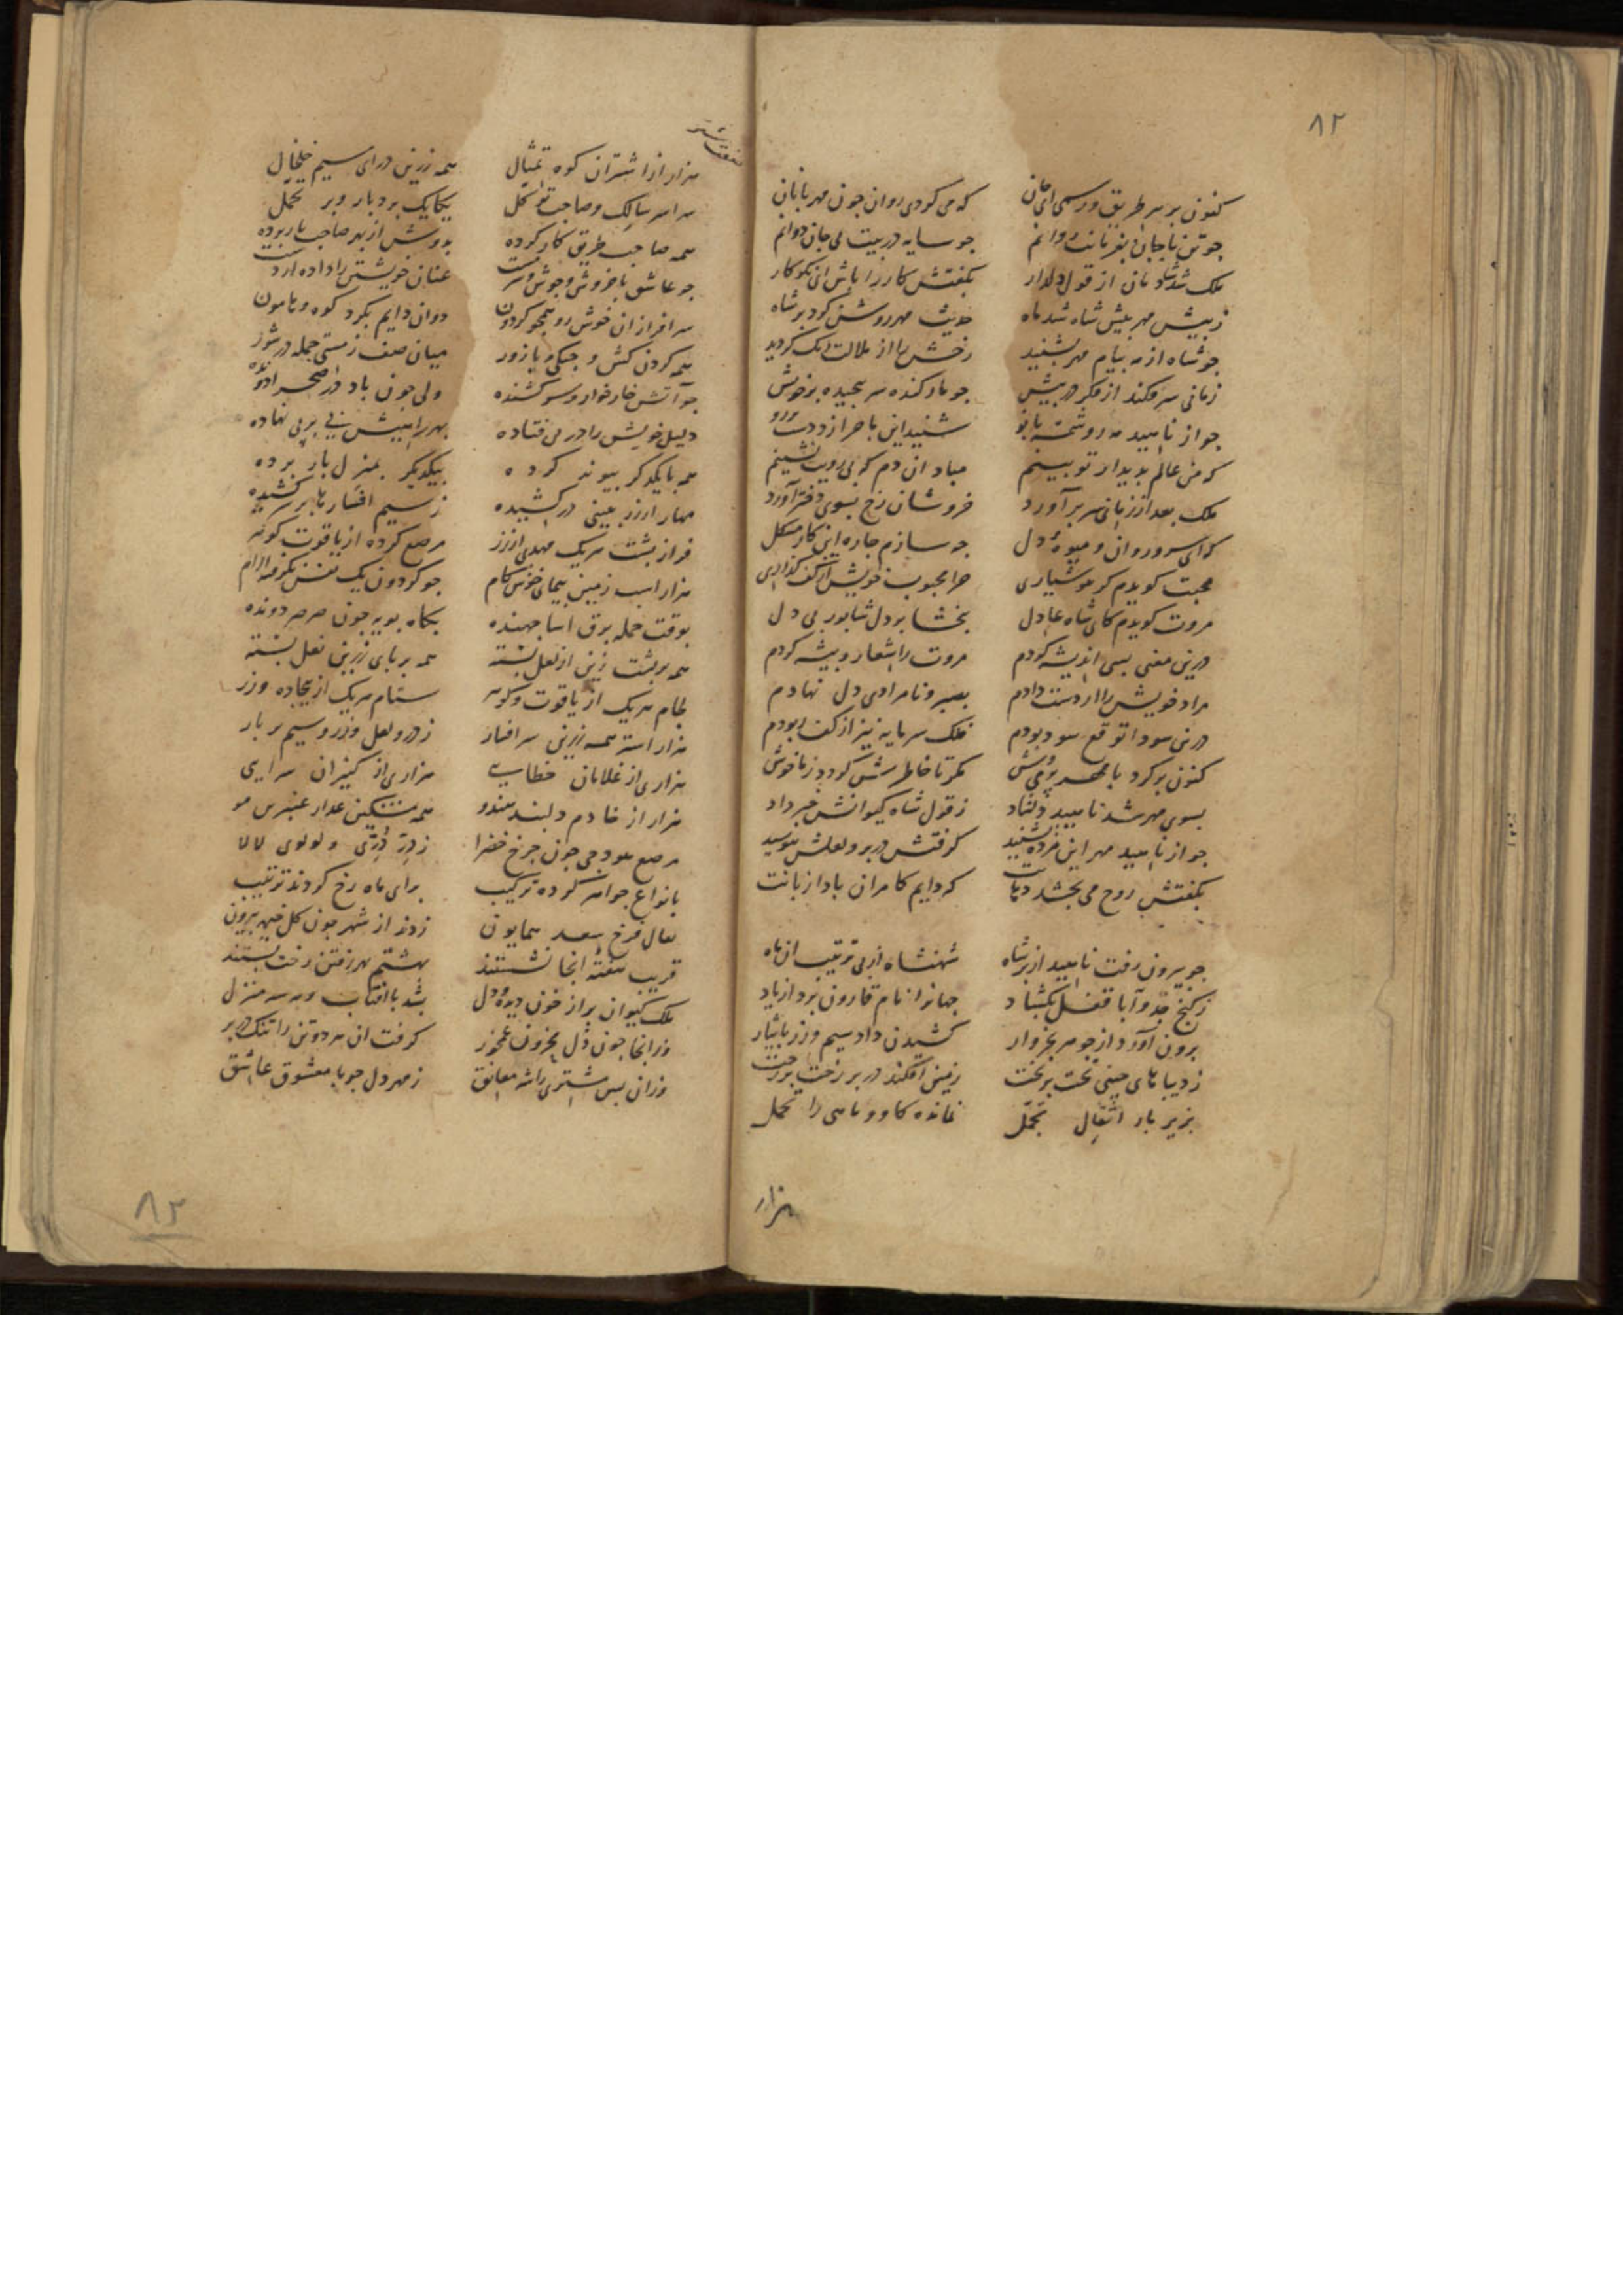 ۸۲
کنون بر سر طریق و رسمی ای جان که می کودی روان چون مهربانان
چو تن با جان بفرمانت روانم چو سایه در پیت بی جان دوانم
ملک شد شادمان از قول دلدار بگفتش کار را باش ای نکوکار
ز پیش مهر پیش شاه شد ماه حدیث مهر روشن کرد بر شاه
چو شاه از مه پیام مهر بشنید رخش را از ملالت رنک کردید
زمانی سر فکند از فکر در پیش چو مار کنده سر پیچیده بر خویش
چو از ناهید مه رو شمسه بانو شنید این ماجرا زد دست
که من عالم بدیدار تو بینم مباد ان دم که بی رویت نشینم
ملک بعد از زمانی سر برآورد خروشان رخ بسوی دختر آورد
که ای سرو روان و میوه دل چه سازم چاره این کار مشکل
محبت کویدم کر هوشیاری چرا محبوب خویش از کف گذاری
مروت کویدم کای شاه عادل ببخشا بر دل شاپور بی دل
درین معنی بسی اندیشه کردم مروت را شعار و پیشه کردم
مراد خویش را از دست دادم بصبر و نامرادی دل نهادم
درین سودا توقع سود بودم فلک سرمایه نیز از کف ربودم
کنون برکرد با مهر مکر تا خاطرش کردد ز ما خوش
بسوی مهر شد ناهید دلشاد ز قول شاه کیوانش خبر داد
چو از ناهید مهر این مژده بشنید کرفتش در بر و لعلش ببوسید
بگفتش روح می بخشد که دایم کامران باد از بانت
چو بیرون رفت ناهید از بر شاه شهنشاه از پی ترتیب ان ماه
ز کنج جد و آبا قفل بکشاد جهانرا نام قارون برد از یاد
برون آورد از جوهر بخروار کشیدن داد سیم و زر بانبار
ز دیباهای چینی تخت بر تخت زمین افکند در بر رخت بر رخت
بزیر بار اثقال تجمل نمانده کاو و ماهی را تحمل
هزار
صفت شتر
هزار از اشتران کوه تمثال همه زرین درای سیم خلخال
سراسر سالک و صاحب توکل یکایک بردبار و پر تحمل
همه صاحب طریق کار کرده بدوش از بهر صاحب بار برده
چو عاشق با خروش و جوش و سرمست عنان خویشتن را داده از دست
سرافرازان خوش رو همچو کردون دوان دایم بکرد کوه و هامون
همه کردن کش و جنکی و با زور میان صف ز مستی جمله در شور
چو آتش خار خوار و سر کشنده ولی چون باد در صحرا دونده
دلیل خویش را در پی فتاده بهر راهیش پی بر پی نهاده
همه با یکدکر پیوند کرده بیکدیکر بمنزل بار برده
مهار از زر ببینی در کشیده ز سیم افسارها بر سر کشیده
فراز پشت هر یک مهدی از زر مرصع کرده از یاقوت و کوهر
هزار اسب زمین پیمای خوش کام چو کردون یک نفس نکرفته آرام
بوقت حمله برق اسا جهنده بکاه پویه چون صرصر دونده
همه بر پشت زین از لعل بسته همه بر پای زرین نعل بسته
لجام هر یک از یاقوت و کوهر ستام هر یک از بیجاده و زر
هزار استر همه زرین سر افسار ز در و لعل و زر و سیم بر بار
هزاری از غلامان خطایی هزاری از کنیزان سرایی
هزار از خادم دلبند هندو همه مشکین عذار عنبرین مو
مرصع هودجی چون چرخ خضرا ز در دری و لولوی لالا
بانواع جواهر کرده ترکیب برای ماه رخ کردند ترتیب
بفال فرخ سعد همایون زدند از شهر چون کل خیمه بیرون
قریب هفته انجا نشستند بهشتم بهر رفتن رخت بستند
ملک کیوان پر از خون دیده و دل بشد با افتاب و مه سه منزل
وز انجا چون دل محزون غمخور کرفت ان هر دو تن را تنک در بر
وزان پس مشتری را شه معانق ز مهر دل چو با معشوق عاشق
۸۲